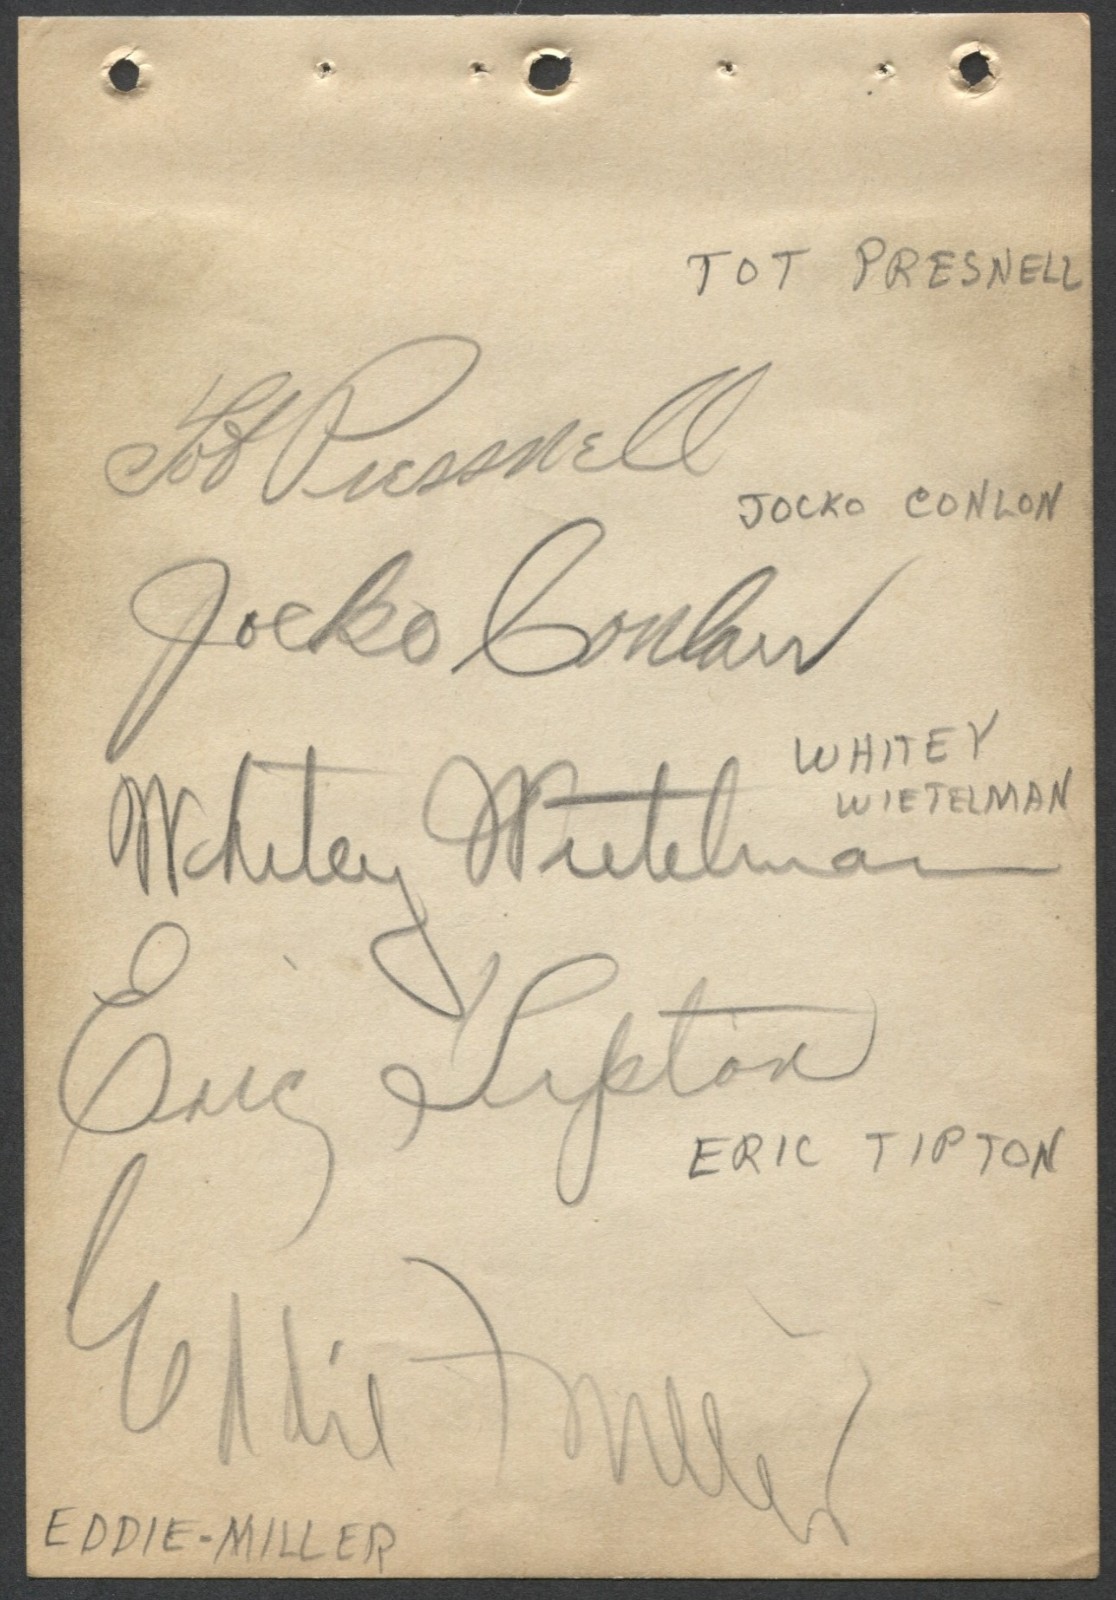 TOT PRESNELL
Tot Pressnell
JOCKO CONLON
Jocko Conlan
WHITEY
WIETELMAN
Whitey Wietelmann
Eric Tipton
ERIC TIPTON
Eddie Miller
EDDIE-MILLER